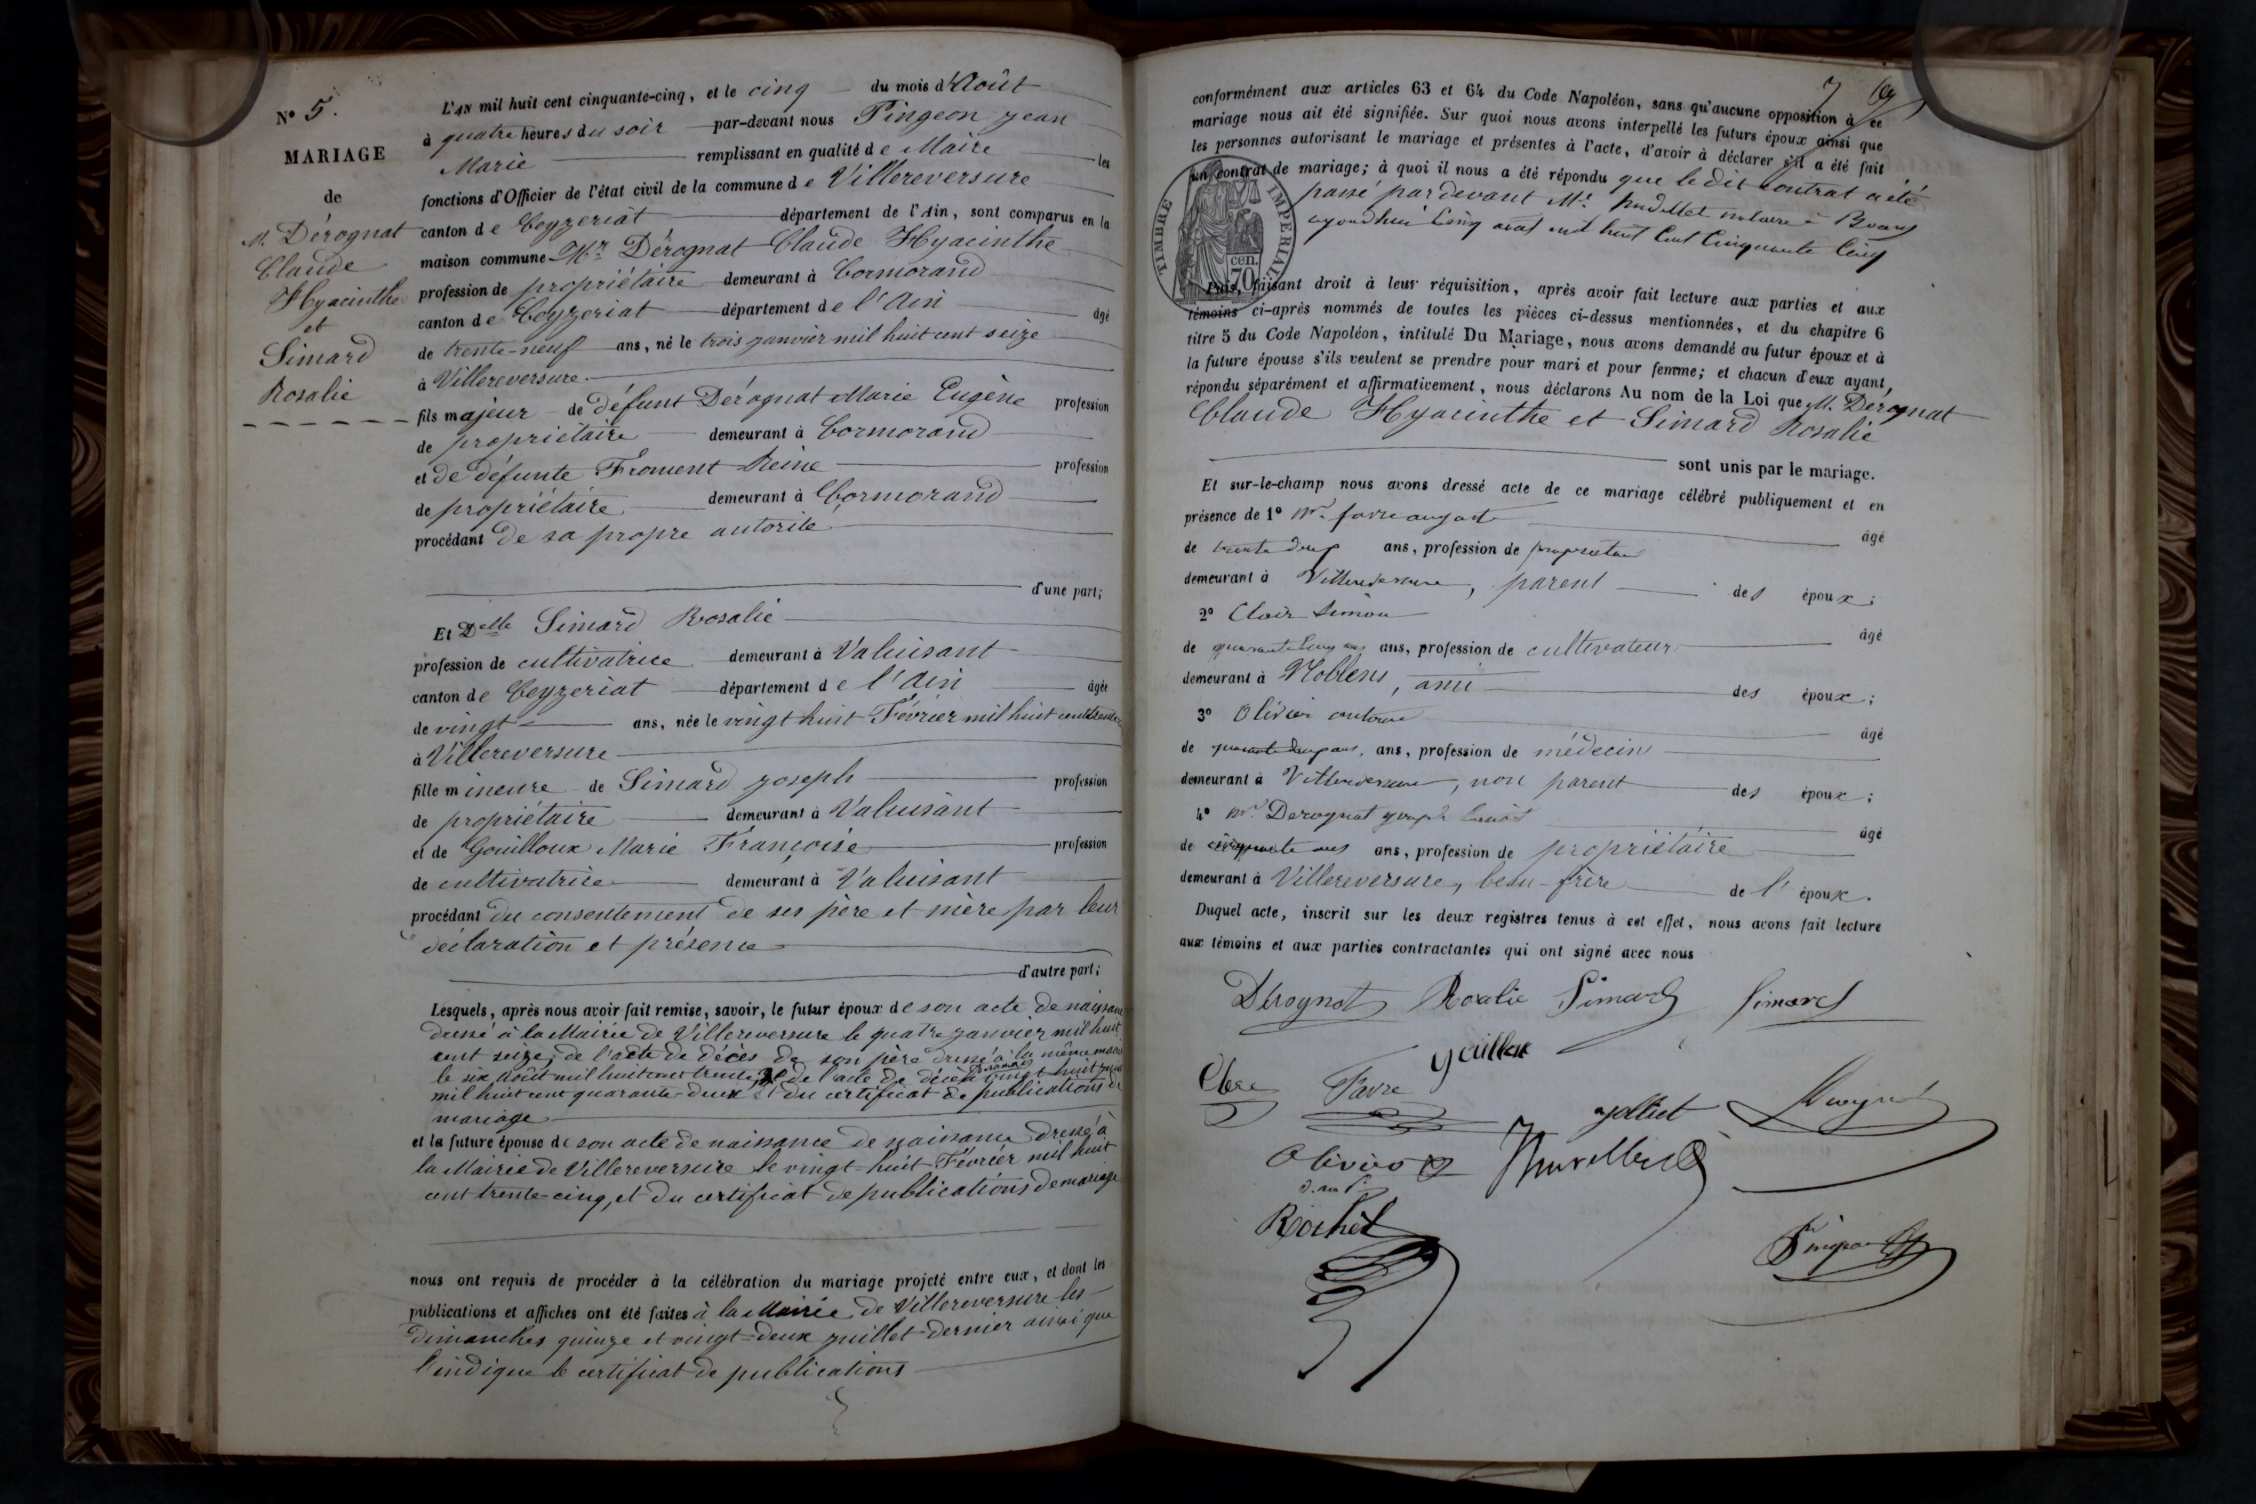 N° 5.
MARIAGE
de
M. Dérognat
Claude
Hyacinthe
et
Simard
Rosalie
L'AN mil huit cent cinquante-cinq, et le cinq du mois d'Août
à quatre heures du soir par-devant nous Pingeon jean
Marie remplissant en qualité de Maire les
fonctions d'Officier de l'état civil de la commune de Villereversure
canton de Ceyzeriat département de l'Ain, sont comparus en la
maison commune Mr Dérognat Claude Hyacinthe
profession de propriétaire demeurant à Cormorand
canton de Ceyzeriat département de l'Ain âgé
de trente-neuf ans, né le trois janvier mil huit cent seize
à Villereversure
fils majeur de défunt Dérognat Marie Eugène profession
de propriétaire demeurant à Cormorand
et de défunte Froment Reine profession
de propriétaire demeurant à Cormorand
procédant de sa propre autorité
d'une part;
Et Delle Simard Rosalie
profession de cultivatrice demeurant à Valuisant
canton de Ceyzeriat département de l'Ain âgée
de vingt ans, née le vingt huit Février mil huit cent
à Villereversure
fille mineure de Simard joseph profession
de propriétaire demeurant à Valuisant
et de Gouilloux Marie Françoise profession
de cultivatrice demeurant à Valuisant
procédant du consentement de ses père et mère par leur
déclaration et présence
d'autre part;
Lesquels, après nous avoir fait remise, savoir, le futur époux de son acte de naissance
dressé à la Mairie de Villereversure le quatre janvier mil huit
cent seize; de l'acte de décès de son père dressé à la même
le six Août mil huit cent de l'acte de décès vingt huit
mil huit cent quarante-deux et du certificat de publications de
mariage
et la future épouse de son acte de naissance de naissance dressé à
la Mairie de Villereversure le vingt-huit Février mil huit
cent trente-cinq, et du certificat de publications de mariage
nous ont requis de procéder à la célébration du mariage projeté entre eux, et dont les
publications et affiches ont été faites à la Mairie de Villereversure les
dimanches quinze et vingt-deux juillet dernier ainsi que
l'indique le certificat de publications
conformément aux articles 63 et 64 du Code Napoléon, sans qu'aucune opposition à ce
mariage nous ait été signifiée. Sur quoi nous avons interpellé les futurs époux ainsi que
les personnes autorisant le mariage et présentes à l'acte, d'avoir à déclarer s'il a été fait
un contrat de mariage; à quoi il nous a été répondu que le dit contrat a été
passé par devant Me notaire à
cinq aout mil huit cent cinquante cinq
TIMBRE IMPERIAL
70 cen.
Puis, faisant droit à leur réquisition, après avoir fait lecture aux parties et aux
témoins ci-après nommés de toutes les pièces ci-dessus mentionnées, et du chapitre 6
titre 5 du Code Napoléon, intitulé Du Mariage, nous avons demandé au futur époux et à
la future épouse s'ils veulent se prendre pour mari et pour femme; et chacun d'eux ayant,
répondu séparément et affirmativement, nous déclarons Au nom de la Loi que M. Dérognat
Claude Hyacinthe et Simard Rosalie
sont unis par le mariage.
Et sur-le-champ nous avons dressé acte de ce mariage célébré publiquement et en
présence de 1° Mr. favre âgé
de ans, profession de propriétaire
demeurant à Villereversure, parent des époux;
2° Clair Simon âgé
de ans, profession de cultivateur
demeurant à Noblens, ami des époux;
3° Olivier antoine âgé
de ans, profession de médecin
demeurant à Villereversure, non parent des époux;
4° Mr. Derognat joseph âgé
de cinquante ans ans, profession de propriétaire
demeurant à Villereversure, beau-frère de l'époux.
Duquel acte, inscrit sur les deux registres tenus à cet effet, nous avons fait lecture
aux témoins et aux parties contractantes qui ont signé avec nous
Dérognat Rosalie Simard Simard
Favre
Olivier
Rochet
Pingeon